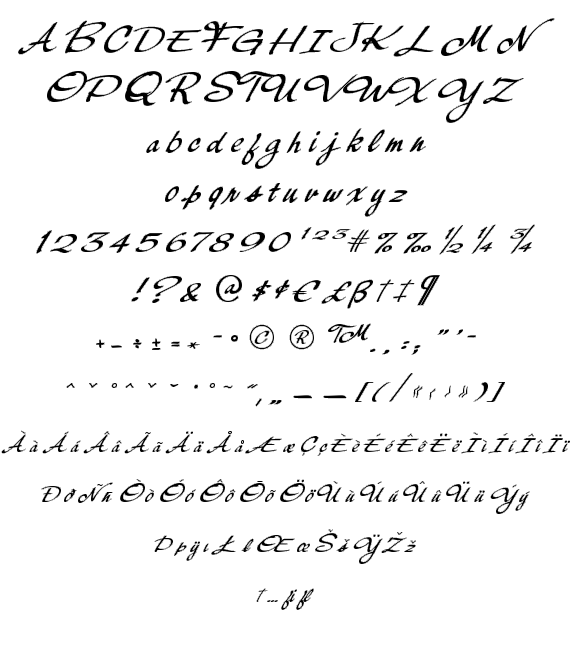 ABCDEFGHIJKLMN
OPQRSTUVWXYZ
abcdefghijklmn
opqrstuvwxyz
1234567890¹²³#%‰½¼¾
!?&@$¢€£β†‡¶
+–÷±=*¯°©®TM.,:;"'-
^ˇ°^ˇ˘·°~˝‚„——[(/«‹›»)]
ÀàÁáÂâÃãÄäÅåÆæÇçÈèÉéÊêËëÌìÍíÎîÏï
ÐðÑñÒòÓóÔôÕõÖöÙùÚúÛûÜüÝý
ÞþÿıŁłŒœŠšŸŽž
†…fifl